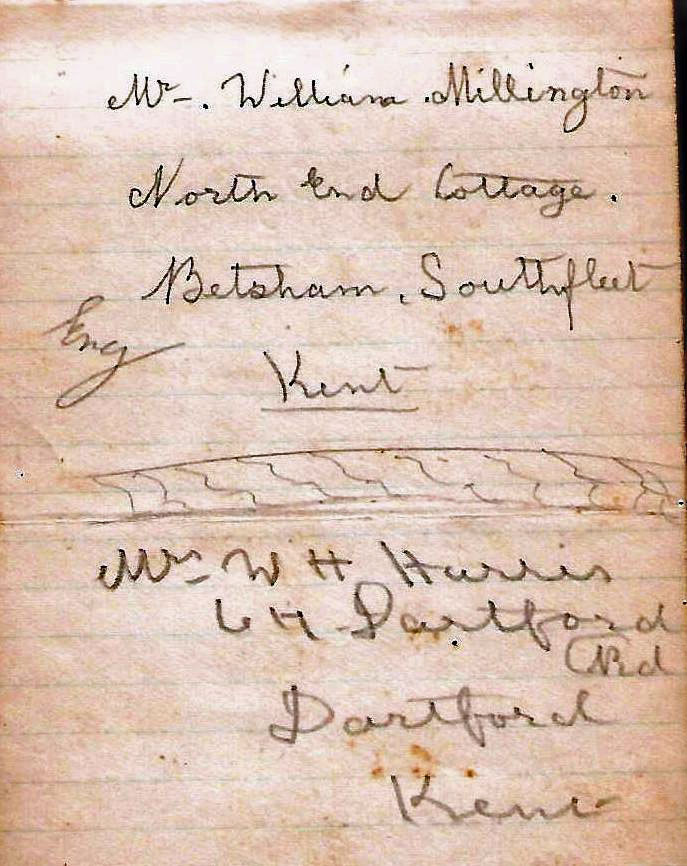 Mr. William Millington
North End Cottage.
Betsham, Southfleet
Eng
Kent
Mrs W H Harris
64 Dartford
Rd
Dartford
Kent